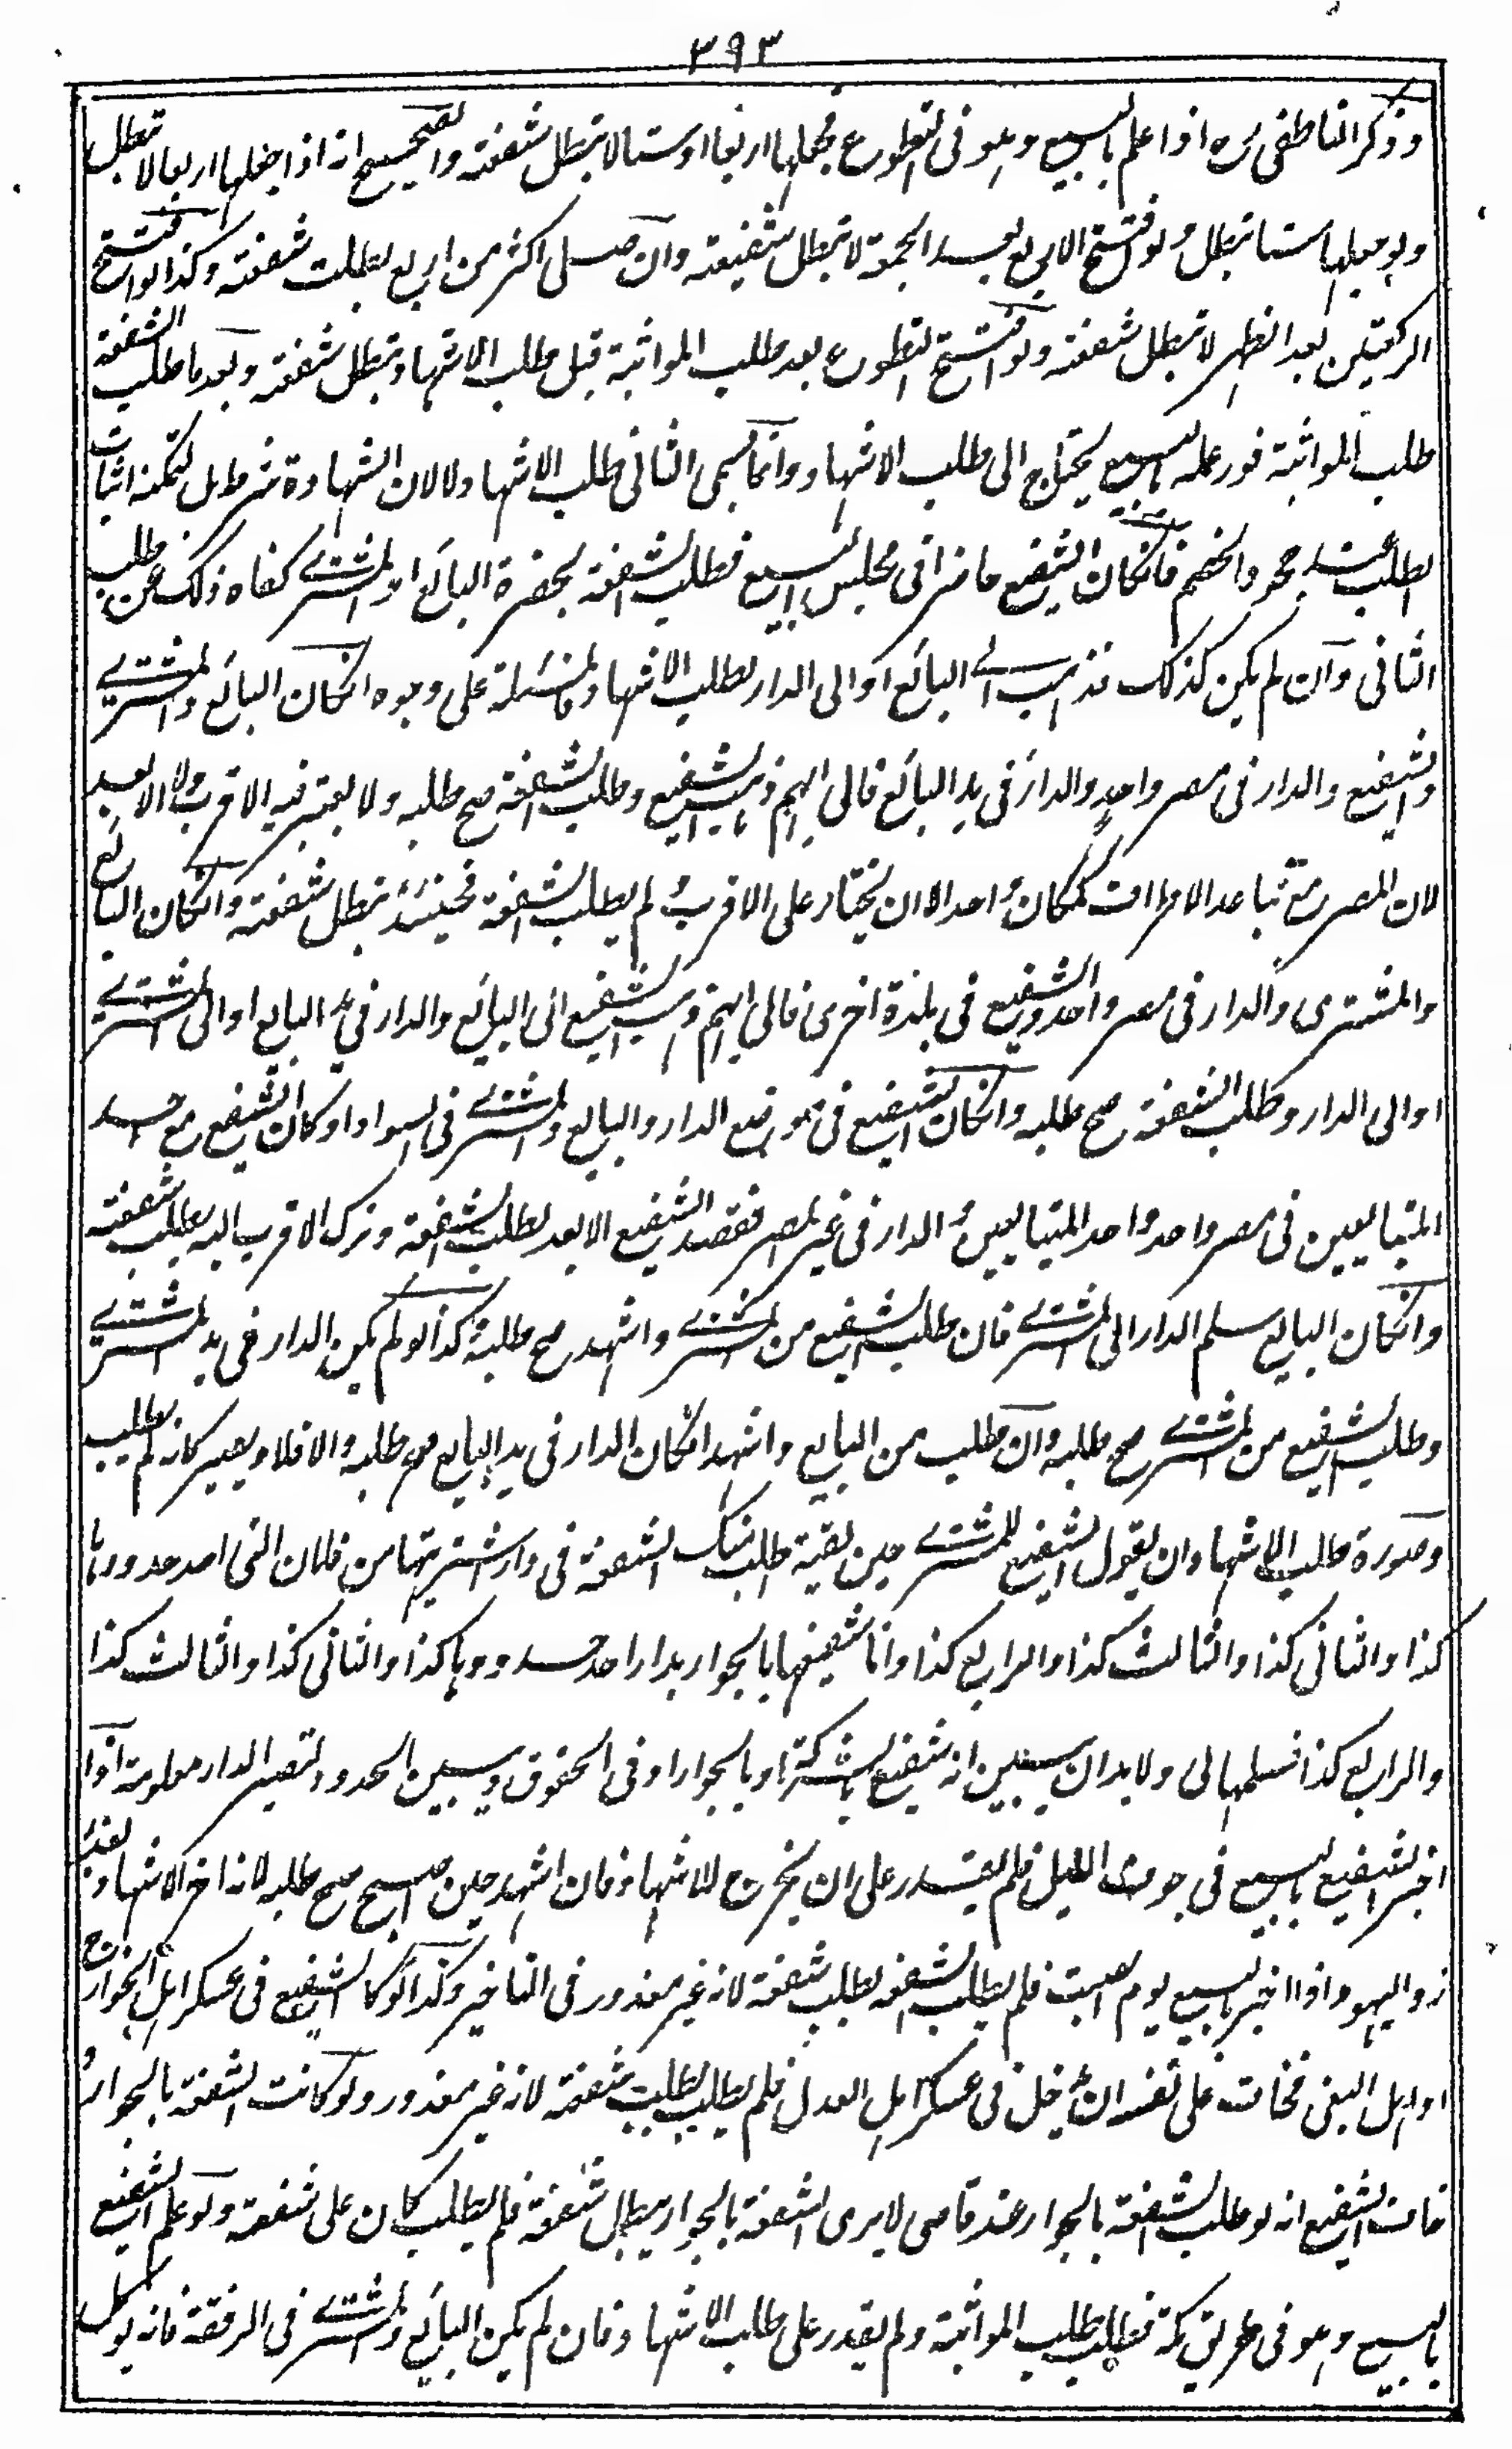 ٣٩٣
وذكر الناطفى رح اذا علم بالبيع وهو فى التطوع فجعلها اربعا او ستا لا تبطل شفعته والصحيح انه اذا جعلها اربعا لا تبطل
ولو جعلها ستا تبطل ولو افتتح الاربع بعد الجمعة لا تبطل شفعته وان صلى اكثر من اربع بطلت شفعته وكذا لو افتتح
الركعتين بعد الظهر لا تبطل شفعته ولو افتتح التطوع بعد طلب المواثبة قبل طلب الاشهاد تبطل شفعته وبعد ما طلب الشفعة
طلب المواثبة فور علمه بالبيع يحتاج الى طلب الاشهاد وانما سمى الثانى طلب الاشهاد لا لان الشهادة شرط بل لتمكنه اثبات
الطلب عند جحود الخصم فانكان الشفيع حاضرا فى مجلس البيع فطلب الشفعة بحضرة البائع او المشترى كفاه ذلك عن طلب
الثانى وان لم يكن كذلك تذهب الى البائع او الى الدار لطلب الاشهاد والمسئلة على وجوه انكان البائع والمشترى
والشفيع والدار فى مصر واحد والدار فى يد البائع فالى ايهم ذهب الشفيع وطلب الشفعة صح طلبه ولا يعتبر فيه الاقرب ولا الابعد
لان المصر مع تباعد الاطراف كمكان واحد الا ان يختار على الاقرب ولم يطلب الشفعة فحينئذ تبطل شفعته وانكان البائع
والمشترى والدار فى مصر واحد والشفيع فى بلدة اخرى فالى ايهم ذهب الشفيع الى البائع والدار فى يد البايع او الى المشترى
او الى الدار وطلب الشفعة صح طلبه وانكان الشفيع فى موضع الدار والبايع والمشترى فى السواد او كان الشفيع مع احد
المتبايعين فى مصر واحد واحد المتبايعين والدار فى غير المصر فقصد الشفيع الابعد لطلب الشفعة وترك الاقرب اليه بطلب شفعته
وانكان البايع سلم الدار الى المشترى فان طلب الشفيع من المشترى واشهد صح طلبه وكذا لو لم يكن الدار فى يد المشترى
وطلب الشفيع من المشترى صح طلبه وان طلب من البايع واشهد انكان الدار فى يد البايع صح طلبه والا فلا ويصير كانه لم يطلب
وصورة طلب الاشهاد ان يقول الشفيع للمشترى حين لقيه طلب منك الشفعة فى دار اشتريتها من فلان التى احد حدودها
كذا والثانى كذا والثالث كذا والرابع كذا وانا شفيعها بالجوار بدار احد حدودها كذا والثانى كذا والثالث كذا
والرابع كذا فسلمها لى ولا بد ان يبين انه شفيع بالشركة او بالجوار او فى الحقوق ويبين الحدود لتصير الدار معلومة اذا
اخبر الشفيع بالبيع فى جوف الليل فلم يقدر على ان يخرج للاشهاد فان اشهد حين اصبح صح طلبه لانه اخر الاشهاد بعذر
زو اليهود اذا اخبر بالبيع يوم السبت فلم يطلب الشفعه بطلب شفعته لانه غير معذور فى التاخير وكذا لو كا الشفيع فى عسكر اهل الخوارج
او اهل البغى فخاف على نفسه ان يدخل فى عسكر اهل العدل فلم يطلب بطلت شفعته لانه غير معذور ولو كانت الشفعة بالجوار و
خاف الشفيع انه لو طلب الشفعة بالجوار عند قاضى لا يرى الشفعة بالجوار يبطل شفعته فلم يطلب كان على شفعته ولو علم الشفيع
بالبيع وهو فى طريق مكة فطلب طلب المواثبة ولم يقدر على طلب الاشهاد فان لم يكن البائع والمشترى فى الرفقة فانه يوكل